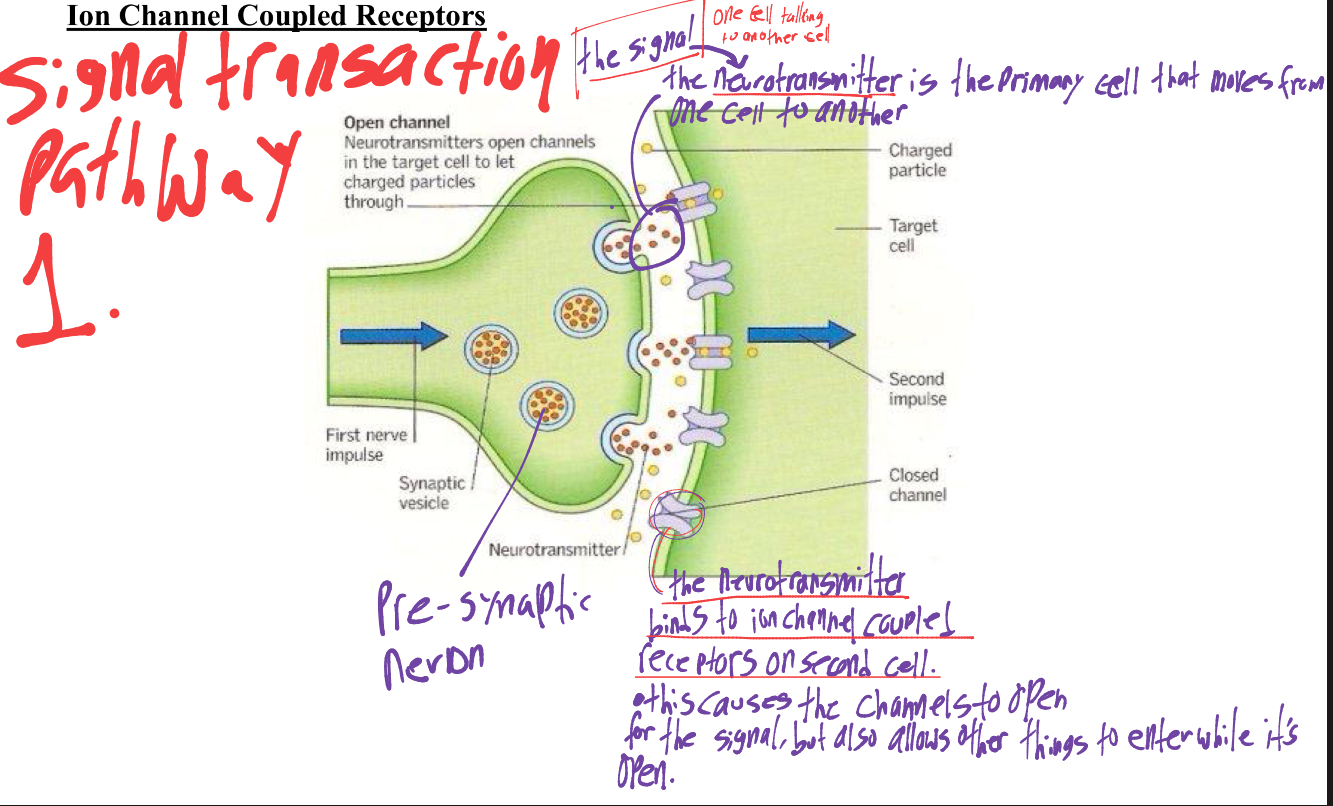 Ion Channel Coupled Receptors
signal transaction
pathway
1.
the signal
one cell talking
to another cell
the neurotransmitter is the primary cell that moves from
one cell to another
Open channel
Neurotransmitters open channels
in the target cell to let
charged particles
through
Charged
particle
Target
cell
Second
impulse
First nerve
impulse
Synaptic
vesicle
Closed
channel
Neurotransmitter
Pre-synaptic
neron
the neurotransmitter
binds to ion channel coupled
receptors on second cell.
• this causes the channels to open
for the signal, but also allows other things to enter while it's
open.